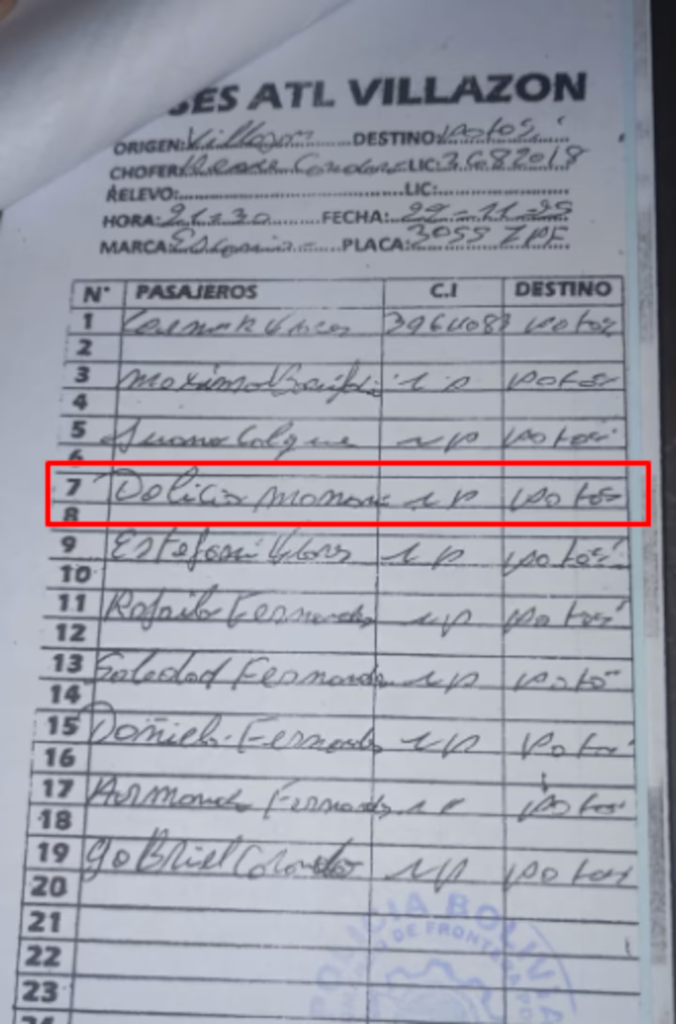 SES ATL VILLAZON
ORIGEN: Villazon DESTINO: Potosi
CHOFER: LIC: 3682018
RELEVO: LIC:
HORA: 21:30 FECHA: 22-11-25
MARCA: PLACA: 3055 ZPF
N° PASAJEROS C.I DESTINO
1 3964083 Potosi
2
3 Maximo N P Potosi
4
5 Juana Colque N P Potosi
6
7 Delicia Mamani N P Potosi
8
9 Estefani Flores N P Potosi
10
11 Rafaila Fernandez N P Potosi
12
13 Soledad Fernandez N P Potosi
14
15 Daniela Fernandez N P Potosi
16
17 Armando Fernandez N P Potosi
18
19 gaBRiel N P Potosi
20
21
22
23
24
POLICIA BOLIVIA
DE FRONTERA